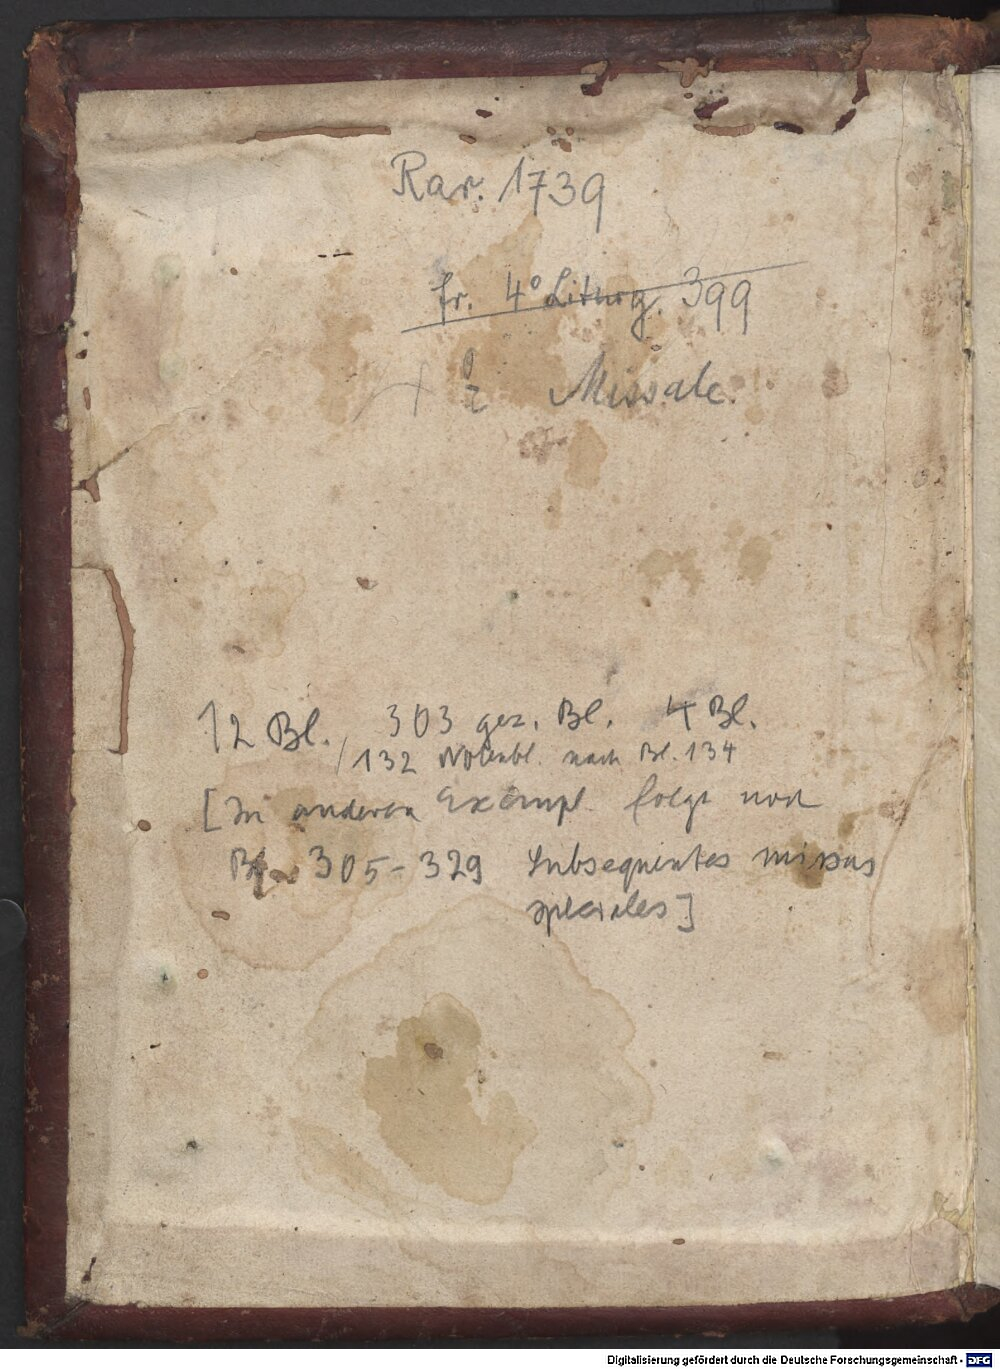 Rar. 1739
fr. 4° Liturg. 399
Missale.
12 Bl., 303 gez. Bl. 4 Bl.
132 Notenbl. nach Bl. 134
[In anderen Exempl. folgt noch
Bl. 305-329 Subsequentes missas
speciales]
Digitalisierung gefördert durch die Deutsche Forschungsgemeinschaft - DFG